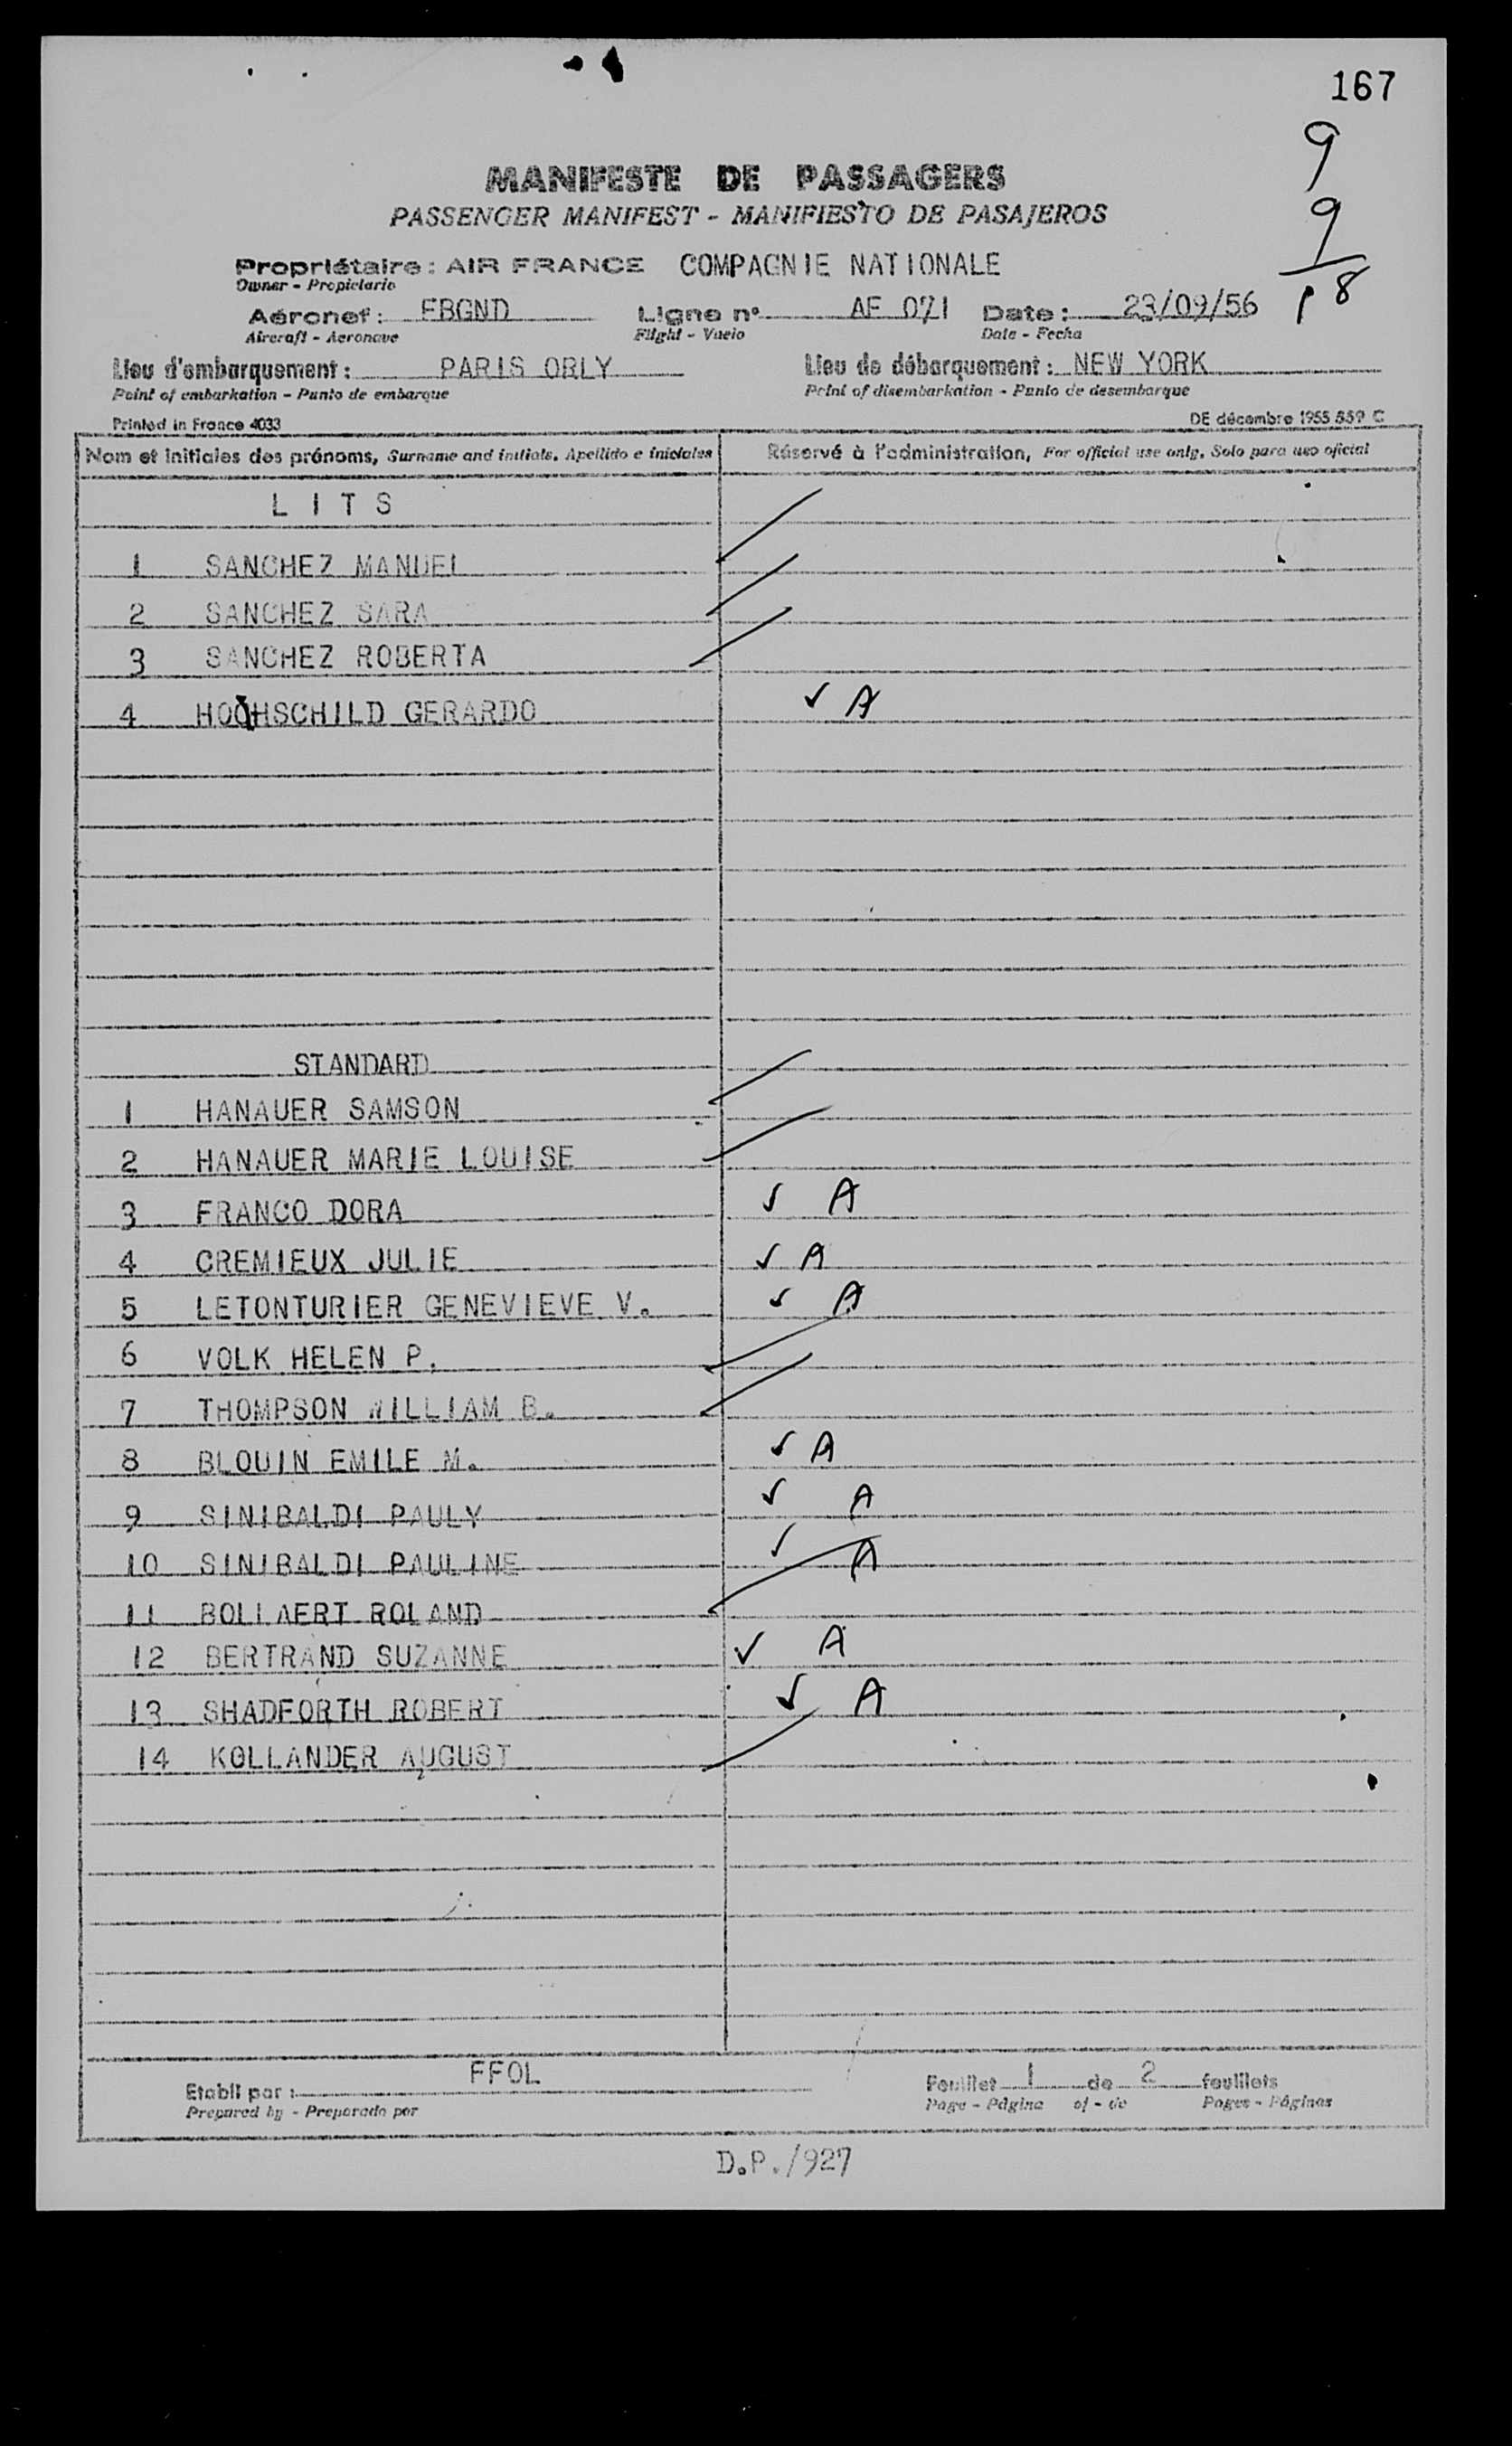 167
9
9
18
MANIFESTE DE PASSAGERS
PASSENGER MANIFEST - MANIFIESTO DE PASAJEROS
Propriétaire : AIR FRANCE COMPAGNIE NATIONALE
Owner - Propietario
Aéronef : FBGND Ligne n° AF 071 Date : 23/09/56
Aircraft - Aeronave Flight - Vuelo Date - Fecha
Lieu d'embarquement : PARIS ORLY Lieu de débarquement : NEW YORK
Point of embarkation - Punto de embarque Point of disembarkation - Punto de desembarque
Printed in France 4033 DE décembre 1955 559 C
Nom et initiales des prénoms, Surname and initials, Apellido e iniciales Réservé à l'administration, For official use only, Solo para uso oficial
LITS
1 SANCHEZ MANUEL
2 SANCHEZ SARA
3 SANCHEZ ROBERTA
4 HOCHSCHILD GERARDO ✓ A
STANDARD
1 HANAUER SAMSON
2 HANAUER MARIE LOUISE
3 FRANCO DORA ✓ A
4 CREMIEUX JULIE ✓ A
5 LETONTURIER GENEVIEVE V. ✓ A
6 VOLK HELEN P.
7 THOMPSON WILLIAM B.
8 BLOUIN EMILE M. ✓ A
9 SINIBALDI PAULY ✓ A
10 SINIBALDI PAULINE ✓ A
11 BOLLAERT ROLAND
12 BERTRAND SUZANNE ✓ A
13 SHADFORTH ROBERT ✓ A
14 KOLLANDER AUGUST
Etabli par : FFOL Feuillet 1 de 2 feuillets
Prepared by - Preparado por Page - Página of - de Pages - Páginas
D.P./927